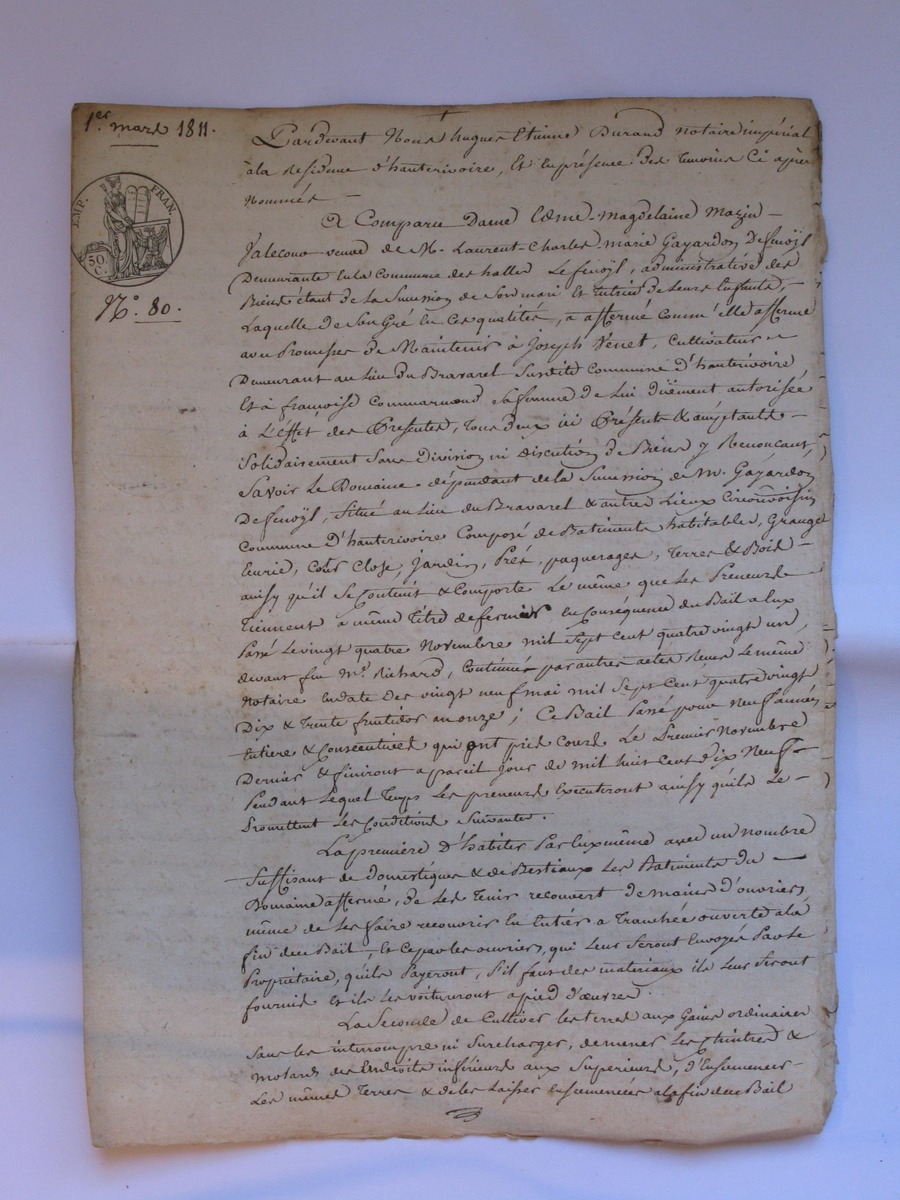 1er. mars 1811.
EMP. FRAN.
50 C.
N°. 80.
Pardevant Nous hugues Etienne Durand notaire impérial
à la Residence d'hauterivoire, Et En présence des temoins Cé après
Nommés —
A Comparu Dame Magdelaine Mazin
veuve de M. Laurent-Charles-marie Gayardon Defenoÿl
Demeurante En la Commune des halles Le fenoÿl, administrative des
Biens étant de la Succession de Son mari Et tutrice de Leurs Enfants, —
Laquelle de Son Gré En Ces qualités, a affermé comm'elle afferme
avec Promesses de Maintenir à Joseph Venet, Cultivateur
Demeurant au Lieu du Bravarel Susdite Commune D'hauterivoire
Et à françoise Commarmond Sa femme de Lui dûëment autorisée
à L'éffet des Présentes, tous deux ici Présents & acceptants —
Solidairement Sans Division ni discution de Biens y Renonçant,
Savoir Le Domaine dépendant de la Succession de M. Gayardon
Defenoÿl, Situé au Lieu du Bravarel & autres Lieux Circonvoisins
Commune D'hauterivoire Composé de Batiments habitables, Grange
Ecurie, Cour Close, Jardin, Prés, paquerages, Terres & Bois —
ainsy qu'il Se Contient & Comporte Le même que Les Preneurs
Tiennent à même Titre de fermier En Conséquence du Bail a Eux
Passé Le vingt quatre Novembre mil Sept Cent quatre vingt un,
devant feu Me. Richard, Continué par autres actes Reçus Le même
Notaire En date des vingt neuf mai mil Sept Cent quatre vingt
Dix & Trente fructidor an onze; Ce Bail Passé pour neuf années
Entiere & Consecutives qui ont pris Cours Le Premier Novembre
Dernier & finiront a pareil jour de mil huit Cent dix Neuf —
Pendant Lequel Temps Les preneurs Executeront ainsy qu'ils Le —
Promettent Les Conditions Suivantes.
La première D'habiter Par Eux même avec un nombre
Suffisant de domestiques & de Bestiaux Les Batiments du —
Domaine affermé, de Les Tenir recouvert de mains d'ouvriers
même de Les faire recouvrir En Entier a Tranchée ouverte a la
fin du Bail, Et Ce par les ouvriers, qui Leur Seront Envoyés Par Le
Propriétaire, qu'ils Payeront, S'il faut des matériaux ils Leur Seront
fournis Et ils Les voitureront a pied d'œuvres.
La Seconde de Cultiver les terres aux Gains ordinaires
Sans les interrompre ni Surcharger, de mener Les &
Des Endroits inférieurs aux Superieurs, d'Ensemencer
Les mêmes Terres & de les Laisser Ensemencées a la fin du Bail